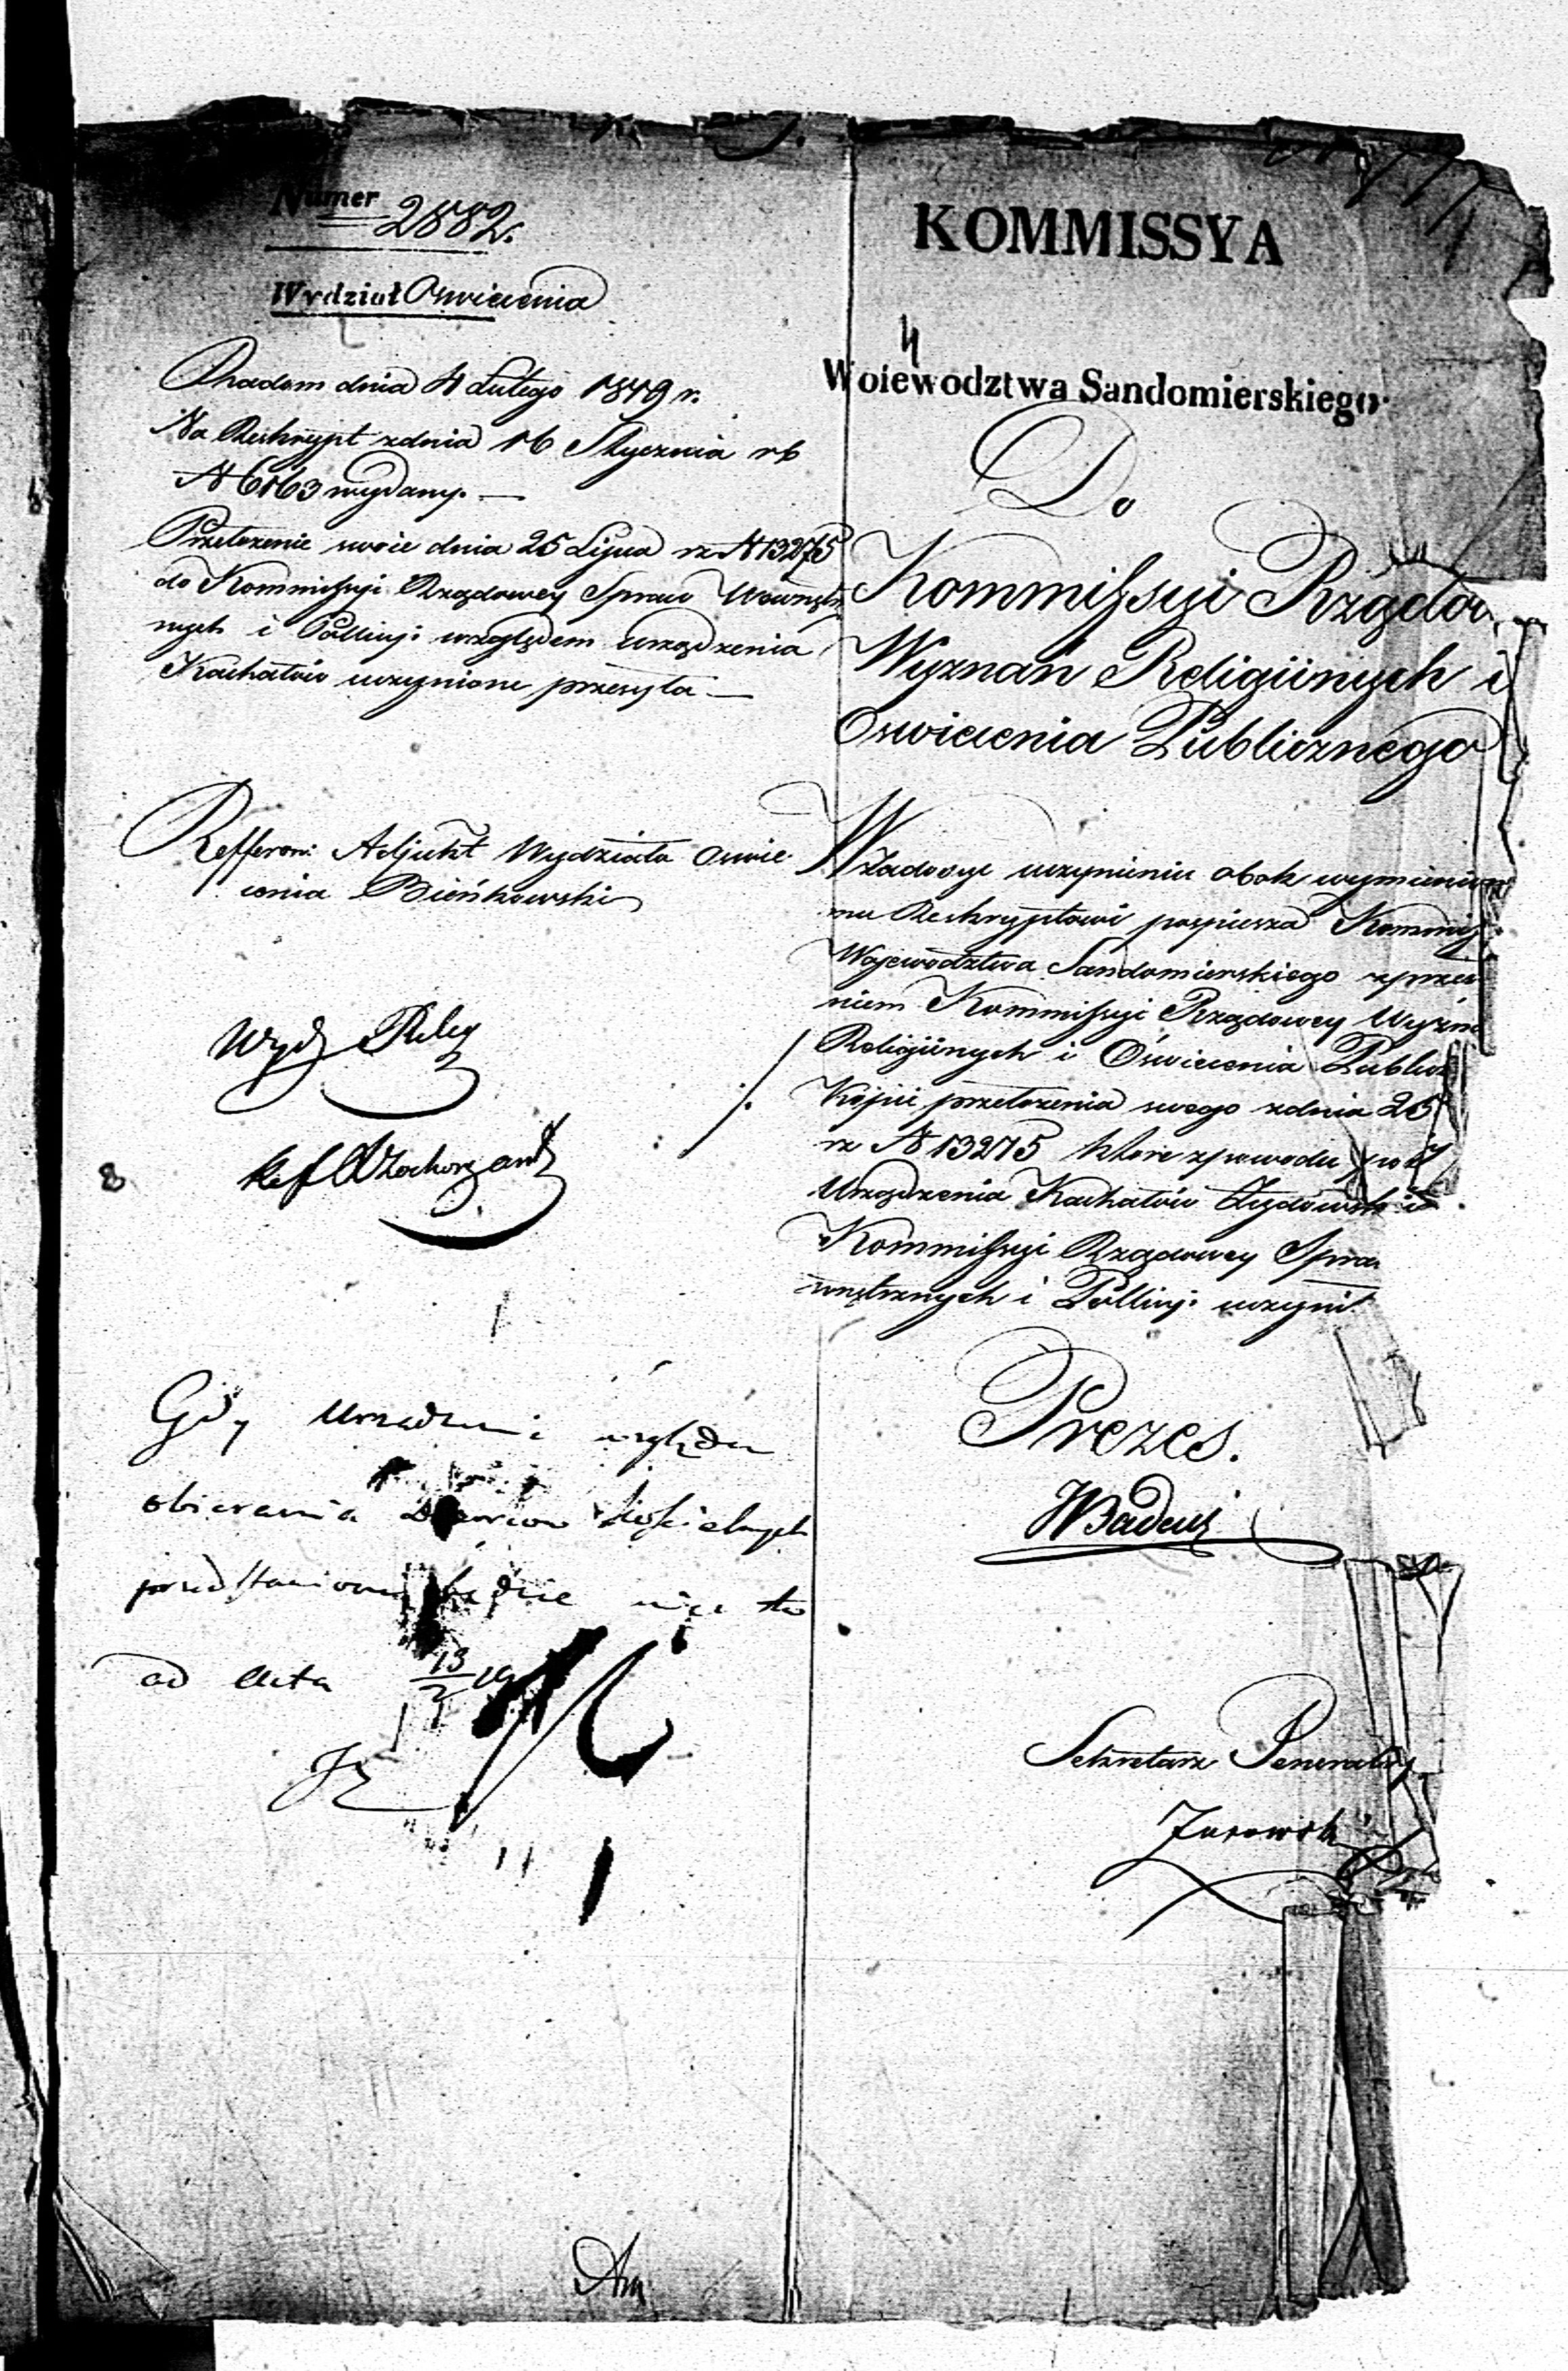 Numer 2882.
Wydział Oswiecenia
Radom dnia 4 Lutego 1819 r.
Na Reskrypt zdnia 16 Stycznia rb
N 6163 wydany. —
Przełożenie swoie dnia 25 Lipca rz N 13275
do Kommissyi Rządowey Spraw Wewnętrz
nych i Pollicyi względem urządzenia
Kachałów uczynione przesyła —
Refferow: Adjunkt Wydziału Oswie
cenia Bieńkowski
Wydz Relig
Ref
8
Gdy urządzenie względem
obierania kościelnych
przedstawione będzie więc to
ad acta 13/2 19
KOMMISSYA
4
Woiewodztwa Sandomierskiego
Do
Kommissyi Rządow
Wyznań Religiinych i
Oswiecenia Publicznego
Wzadosyc uczynieniu obok wymienion
mu Reskryptowi pospiesza Kommiss
Wojewodztwa Sandomierskiego zprzes
niem Kommissyi Rządowey Wyzn
Religiinych i Oświecenia Public
Kopii przełożenia swego zdnia 25
rz N 13275 które zpowodu
Urządzenia Kachałów Żydowski
Kommissyi Rządowey Spra
wnętrznych i Pollicyi uczynił
Prezes.
Badeni
Sekretarz Generalny